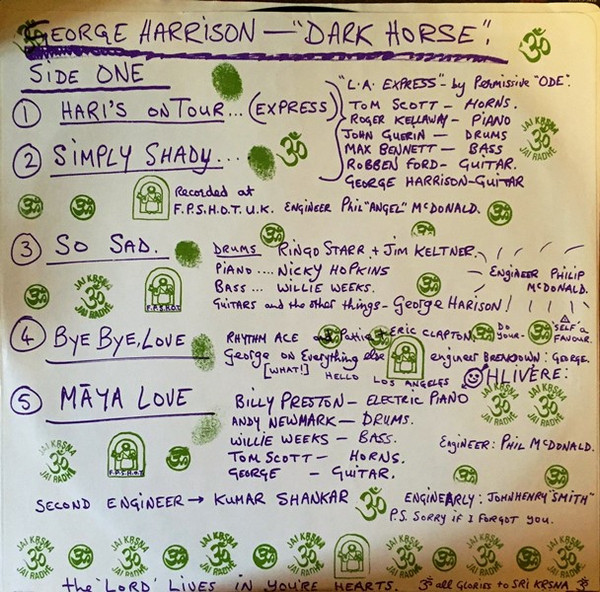 GEORGE HARRISON — "DARK HORSE".
SIDE ONE
① HARI'S ON TOUR... (EXPRESS)
"L.A. EXPRESS" - by Permissive "ODE".
TOM SCOTT — HORNS.
ROGER KELLAWAY — PIANO
JOHN GUERIN — DRUMS
MAX BENNETT — BASS
ROBBEN FORD — GUITAR.
GEORGE HARRISON - GUITAR
② SIMPLY SHADY...
ॐ
JAI KRSNA
ॐ
JAI RADHE
Recorded at
F.P.S.H.O.T. U.K. ENGINEER Phil "ANGEL" McDONALD.
③ SO SAD.
DRUMS RINGO STARR + JIM KELTNER.
PIANO .... NICKY HOPKINS
BASS ... WILLIE WEEKS.
GUITARS and the other things - George HARISON!
ENGINEER PHILIP
McDONALD.
JAI KRSNA
ॐ
JAI RADHE
F.P.S.H.O.T.
④ BYE BYE, LOVE
RHYTHM ACE and Pattie + ERIC CLAPTON. DO YOUR- SELF a FAVOUR.
George on Everything else engineer BREAKDOWN: GEORGE.
[WHAT!] HELLO LOS ANGELES OHLIVERE:
⑤ MĀYA LOVE
BILLY PRESTON — ELECTRIC PIANO
ANDY NEWMARK — DRUMS.
WILLIE WEEKS — BASS.
TOM SCOTT — HORNS.
GEORGE — GUITAR.
ENGINEER: PHIL McDONALD.
JAI KRSNA
ॐ
JAI RADHE
F.P.S.H.O.T.
SECOND ENGINEER → KUMAR SHANKAR ॐ
ENGINEARLY: JOHNHENRY "SMITH"
P.S. SORRY if I FORGOT YOU.
JAI KRSNA
ॐ
JAI RADHE
the 'LORD' LIVES IN YOU'RE HEARTS. ॐ all GLORIES to SRI KRSNA ॐ